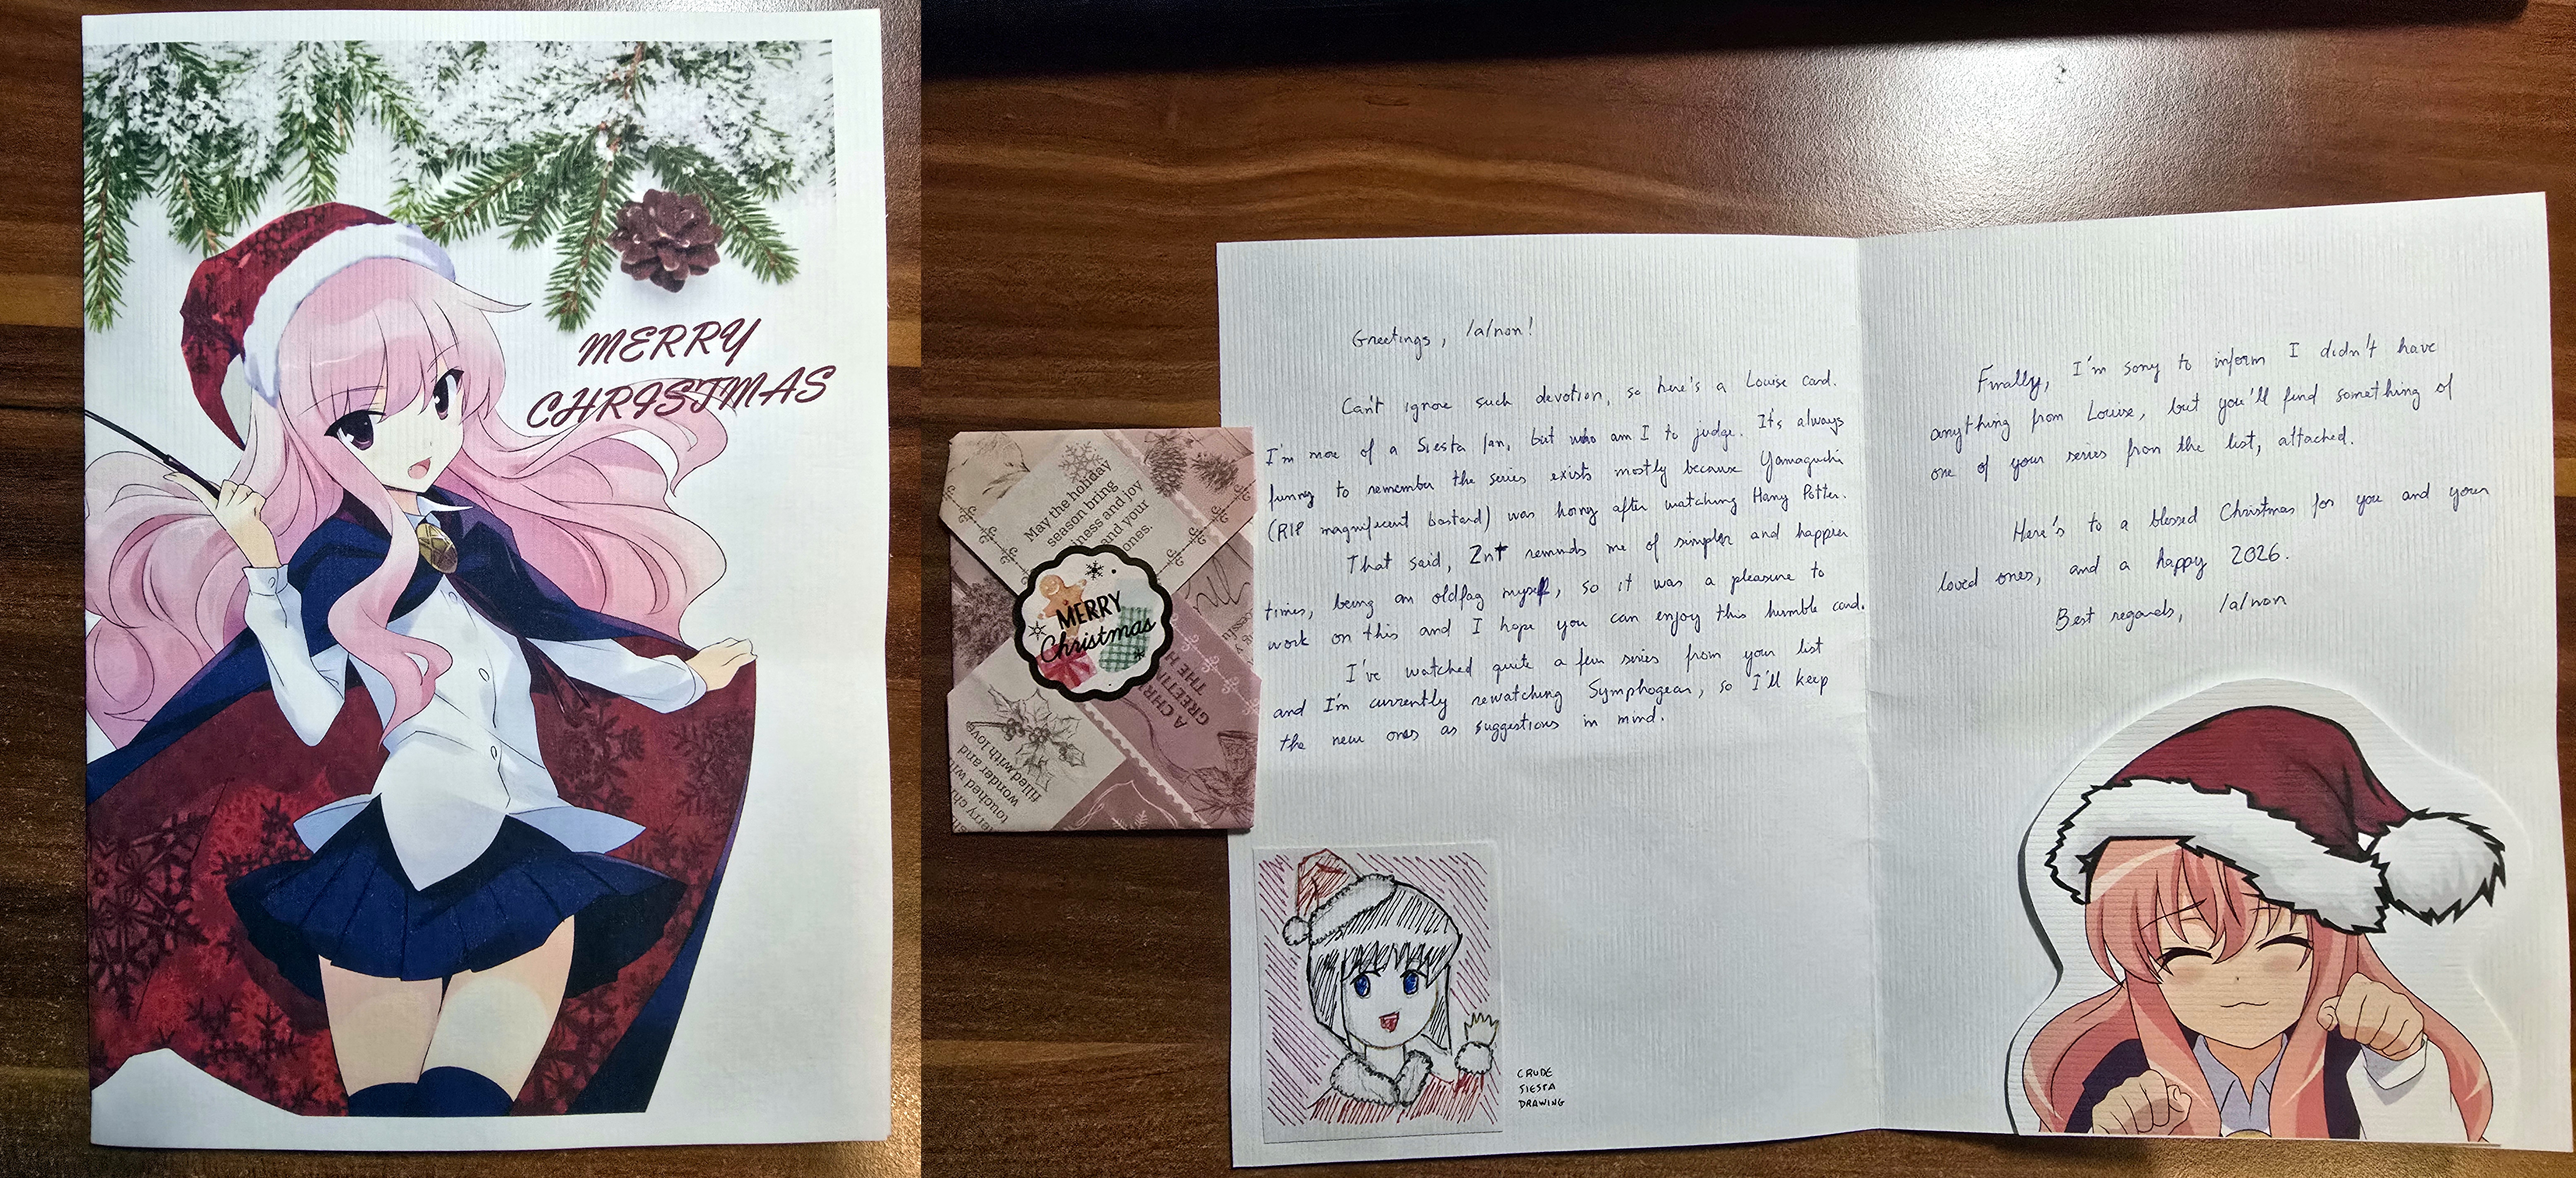 MERRY
CHRISTMAS
May the holiday
season bring
iness and joy
and your
ones.
MERRY
Christmas
A CHRI
GREETIN
THE H
filled with love
wonder and
touched wi
erry ch
Greetings, /a/non!
Can't ignore such devotion, so here's a Louise card.
I'm more of a Siesta fan, but who am I to judge. It's always
funny to remember the series exists mostly because Yamaguchi
(RIP magnificent bastard) was horny after watching Harry Potter.
That said, ZnT reminds me of simpler and happier
times, being an oldfag myself, so it was a pleasure to
work on this and I hope you can enjoy this humble card.
I've watched quite a few series from your list
and I'm currently rewatching Symphogear, so I'll keep
the new ones as suggestions in mind.
CRUDE
SIESTA
DRAWING
Finally, I'm sorry to inform I didn't have
anything from Louise, but you'll find something of
one of your series from the list, attached.
Here's to a blessed Christmas for you and your
loved ones, and a happy 2026.
Best regards, /a/non